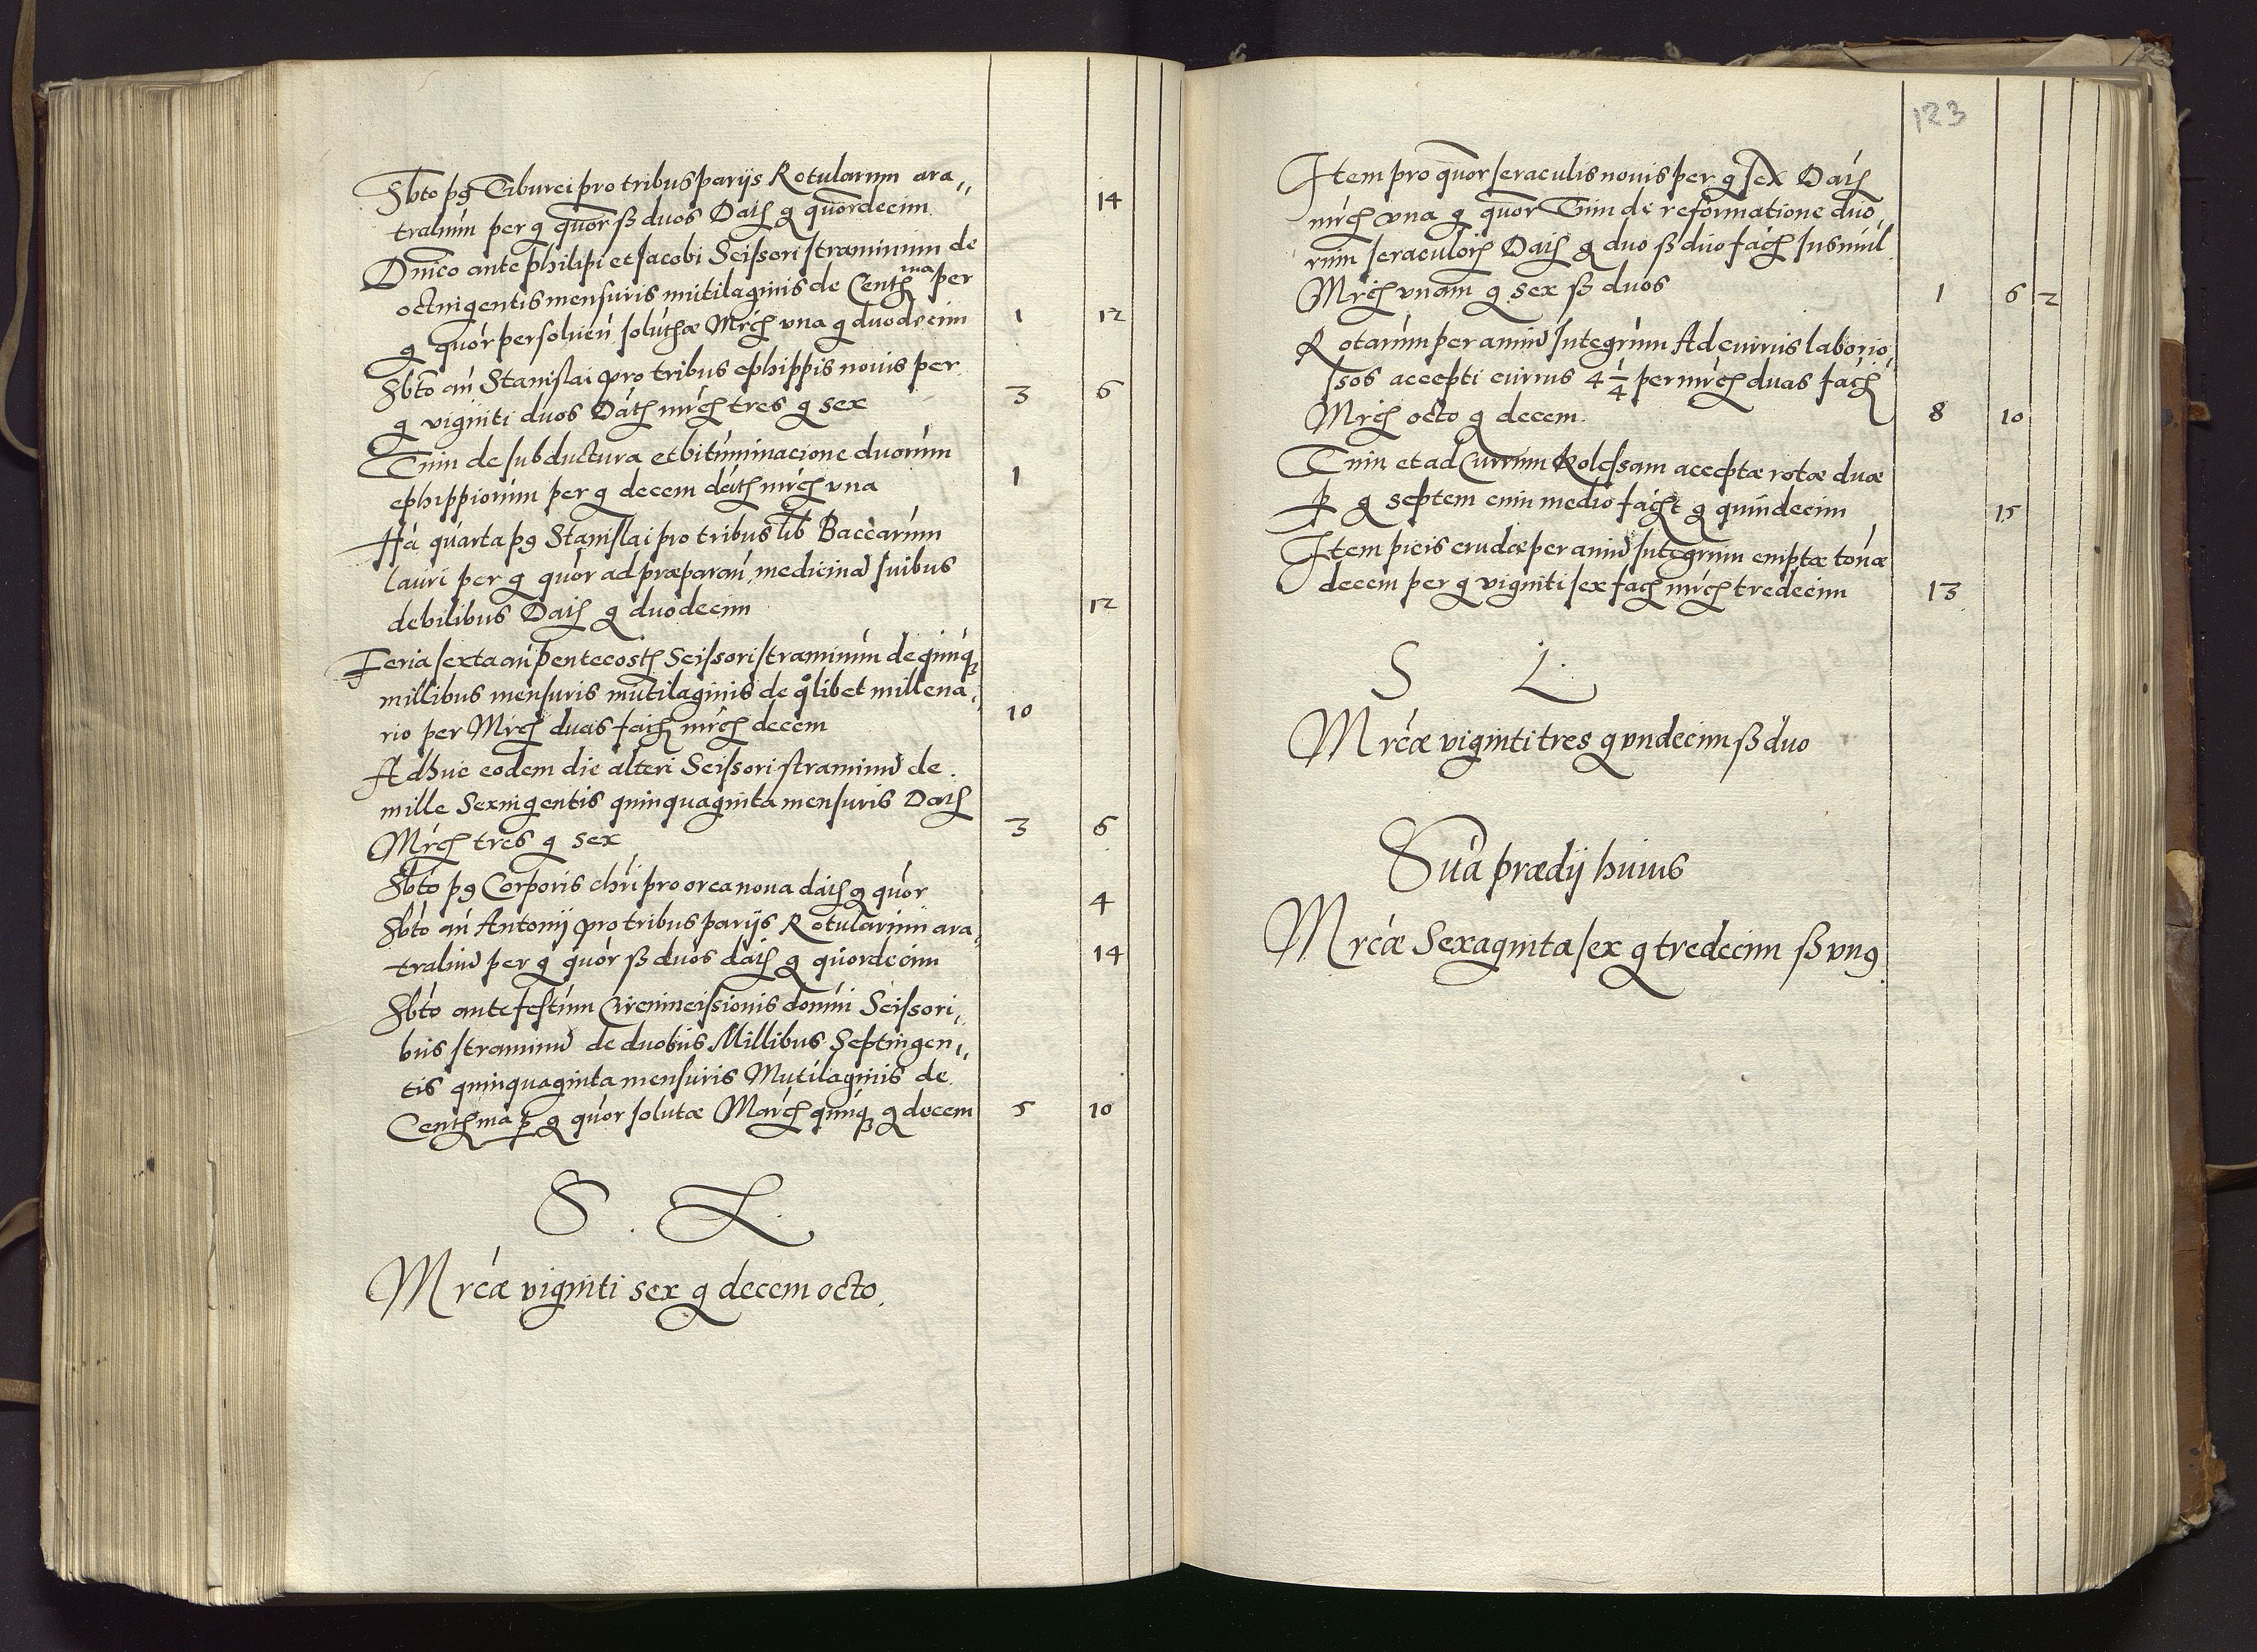 Sbto pꝯ Tiburci pro tribus parijs Rotularum ara„
tralium per g quor ß duos Datꝭ g quordecim 14
Dnico ante philipi et Jacobi Scissori straminum de
octuigentis mensuris mutilaginis de Centꝭma per
g quor persolueń soluthæ Mrcꝭ vna g duodecim 1 12
Sbto añ Stanislai pro tribus ephippis nouis per
g viginti duos Datꝭ mrcꝭ tres g sex 3 6
Tum de subductura et bituminacione duorum
ephippiorum per g decem datꝭ mrcꝭ vna 1
ffa quarta pꝯ Stanislai pro tribus lib Baccarum
lauri per g quor ad præparań medicinā suibus
debilibus Datꝭ g duodecim 12
Feria sexta añ pentecostꝭ Scissori straminum de quinqꝫ
millibus mensuris mutilaginis de qlibet millena„
rio per Mrcꝭ duas facꝭ mrcꝭ decem 10
Adhuc eodem die alteri Scissori straminū de
mille Sexingentis quinquaginta mensuris Datꝭ
Mrcꝭ tres g sex 3 6
Sbto pꝯ Corporis chri pro orca noua datꝭ g quor 4
Sbto añ Antonij pro tribus parijs Rotularum ara„
traliū per g quor ß duos datꝭ g quordecim 14
Sbto ante festum Circumcissionis domini Scissori„
bus straminū de duobus Millibus Septingen„
tis quinquaginta mensuris Mutilaginis de
Centꝭma ꝑ g quor solutæ Marcꝭ quinqꝫ g decem 5 10
S. L.
Mrcæ viginti sex g decem octo.
123
Item pro quor seraculis nouis per g sex Datꝭ
mrcꝭ vna g quor Tum de reformatione duo„
rum seraculorꝭ Datꝭ g duo ß duo facꝭ Insimul
Mrcꝭ vnam g sex ß duos 1 6 2
Rotarum per annū Integrum Ad currus laborio„
sos accepti currus 4 1/4 per mrcꝭ duas facꝭ
Mrcꝭ octo g decem. 8 10
Tum et ad Currum Kolessam acceptæ rotæ duæ
ꝑ g septem cum medio facꝭt g quindecim 15
Item picis crudæ per annū Integrum emptæ tonæ
decem per g viginti sex facꝭ mrcꝭ tredecim 13
S L.
Mrcæ viginti tres g vndecim ß duo
Sua prædij huius
Mrcæ Sexaginta sex g tredecim ß vnꝯ